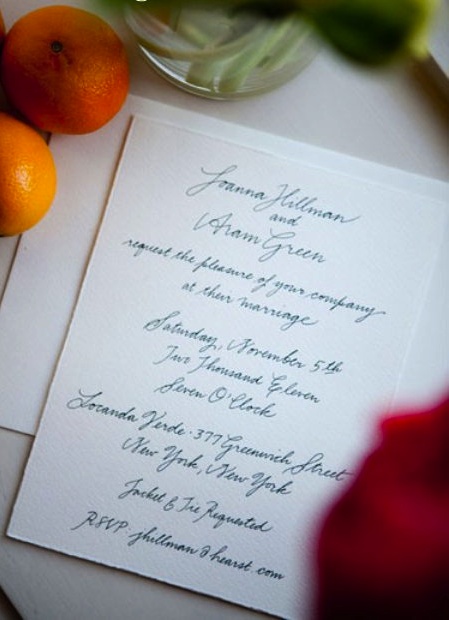 Joanna Hillman
and
Aram Green
request the pleasure of your company
at their marriage
Saturday, November 5th
Two Thousand Eleven
Seven O'Clock
Locanda Verde · 377 Greenwich Street
New York, New York
Jacket & Tie Requested
RSVP · jhillman@hearst.com